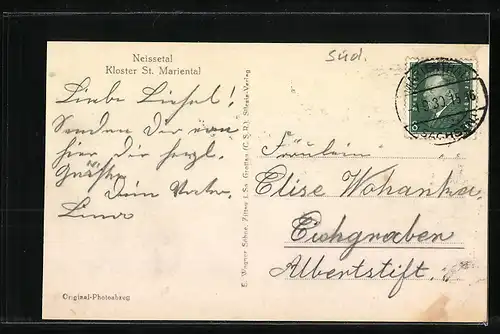 Neissetal
Kloster St. Mariental
Süd.
Liebe Liesel!
Senden Dir von
hier die herzl.
Grüße
Dein Vater
Lina
Original-Photoabzug
E. Wagner Söhne, Zittau i. Sa. Grottau (C. S. R.), Silesia-Verlag
8
30.15
(SACHSEN)
Fräulein
Elise Wohanka
Eichgraben
Albertstift.